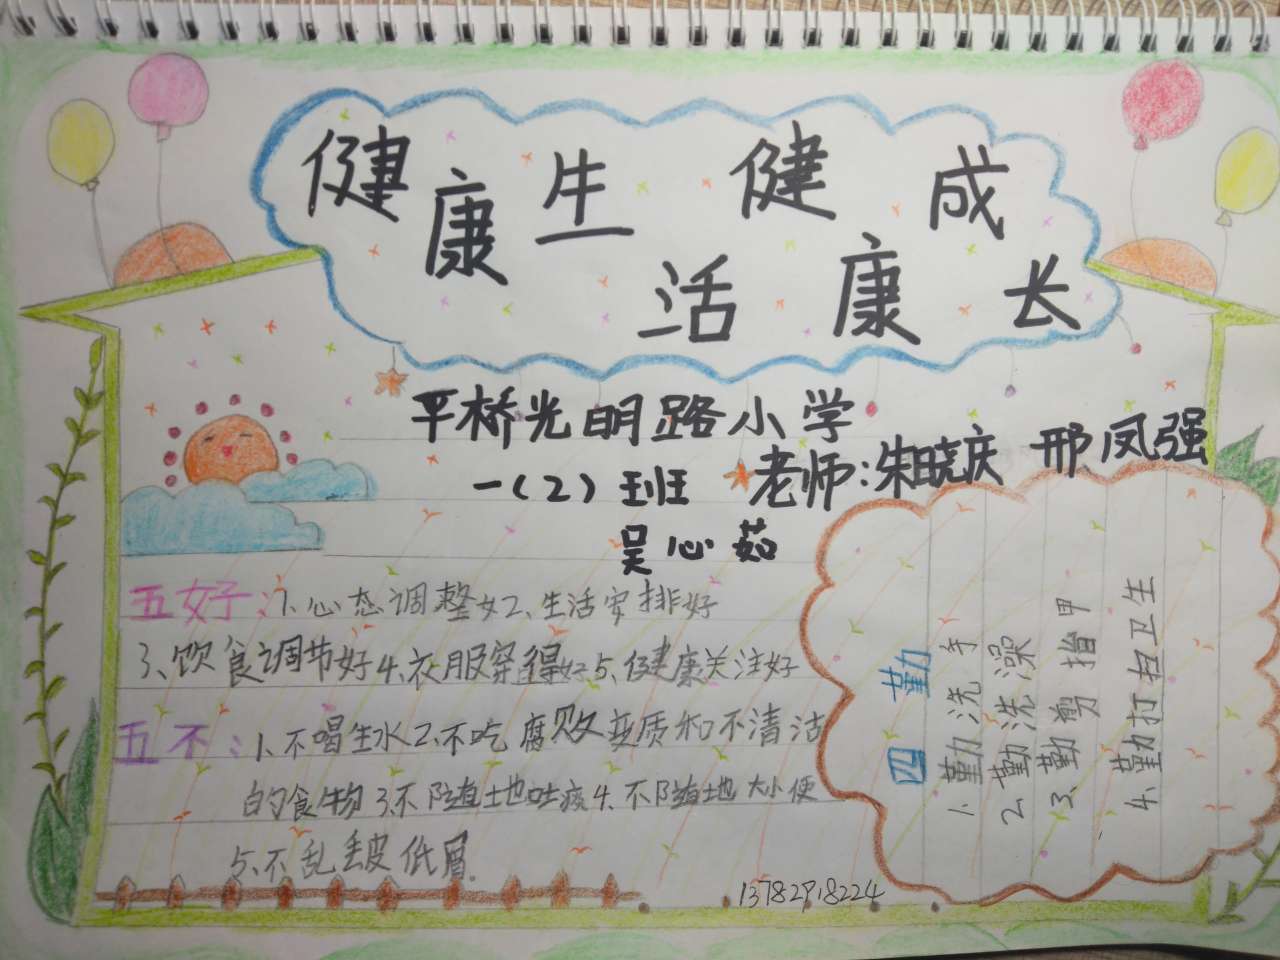 健康生活 健康成长
平桥光明路小学
一(2)班 老师:朱晓庆 邢凤强
吴心茹
五好:1、心态调整好2、生活安排好
3、饮食调节好4、衣服穿得好5、健康关注好
五不:1、不喝生水2、不吃腐败变质和不清洁
的食物3、不随地吐痰4、不随地大小便
5、不乱丢皮低屑.
四勤
1、勤洗手
2、勤洗澡
3、勤剪指甲
4、勤打扫卫生
13782918224